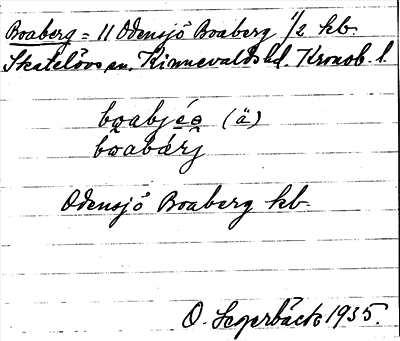 Boaberg = 11 Odensjö Boaberg 1/2 hb.
Skatelövs sn. Kinnevalds hd. Kronob. l.
boabjéə (ä)
bōabärj
Odensjö Boaberg hb.
O. Segerbäck 1935.